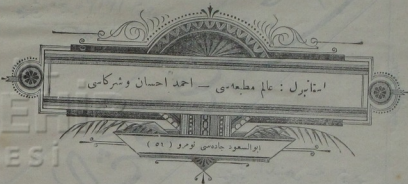 استانبول : عالم مطبعه‌سی ــ احمد احسان وشركاسی
ابوالسعود جاده‌سی نومرو ( ٥٢ )
ESİ